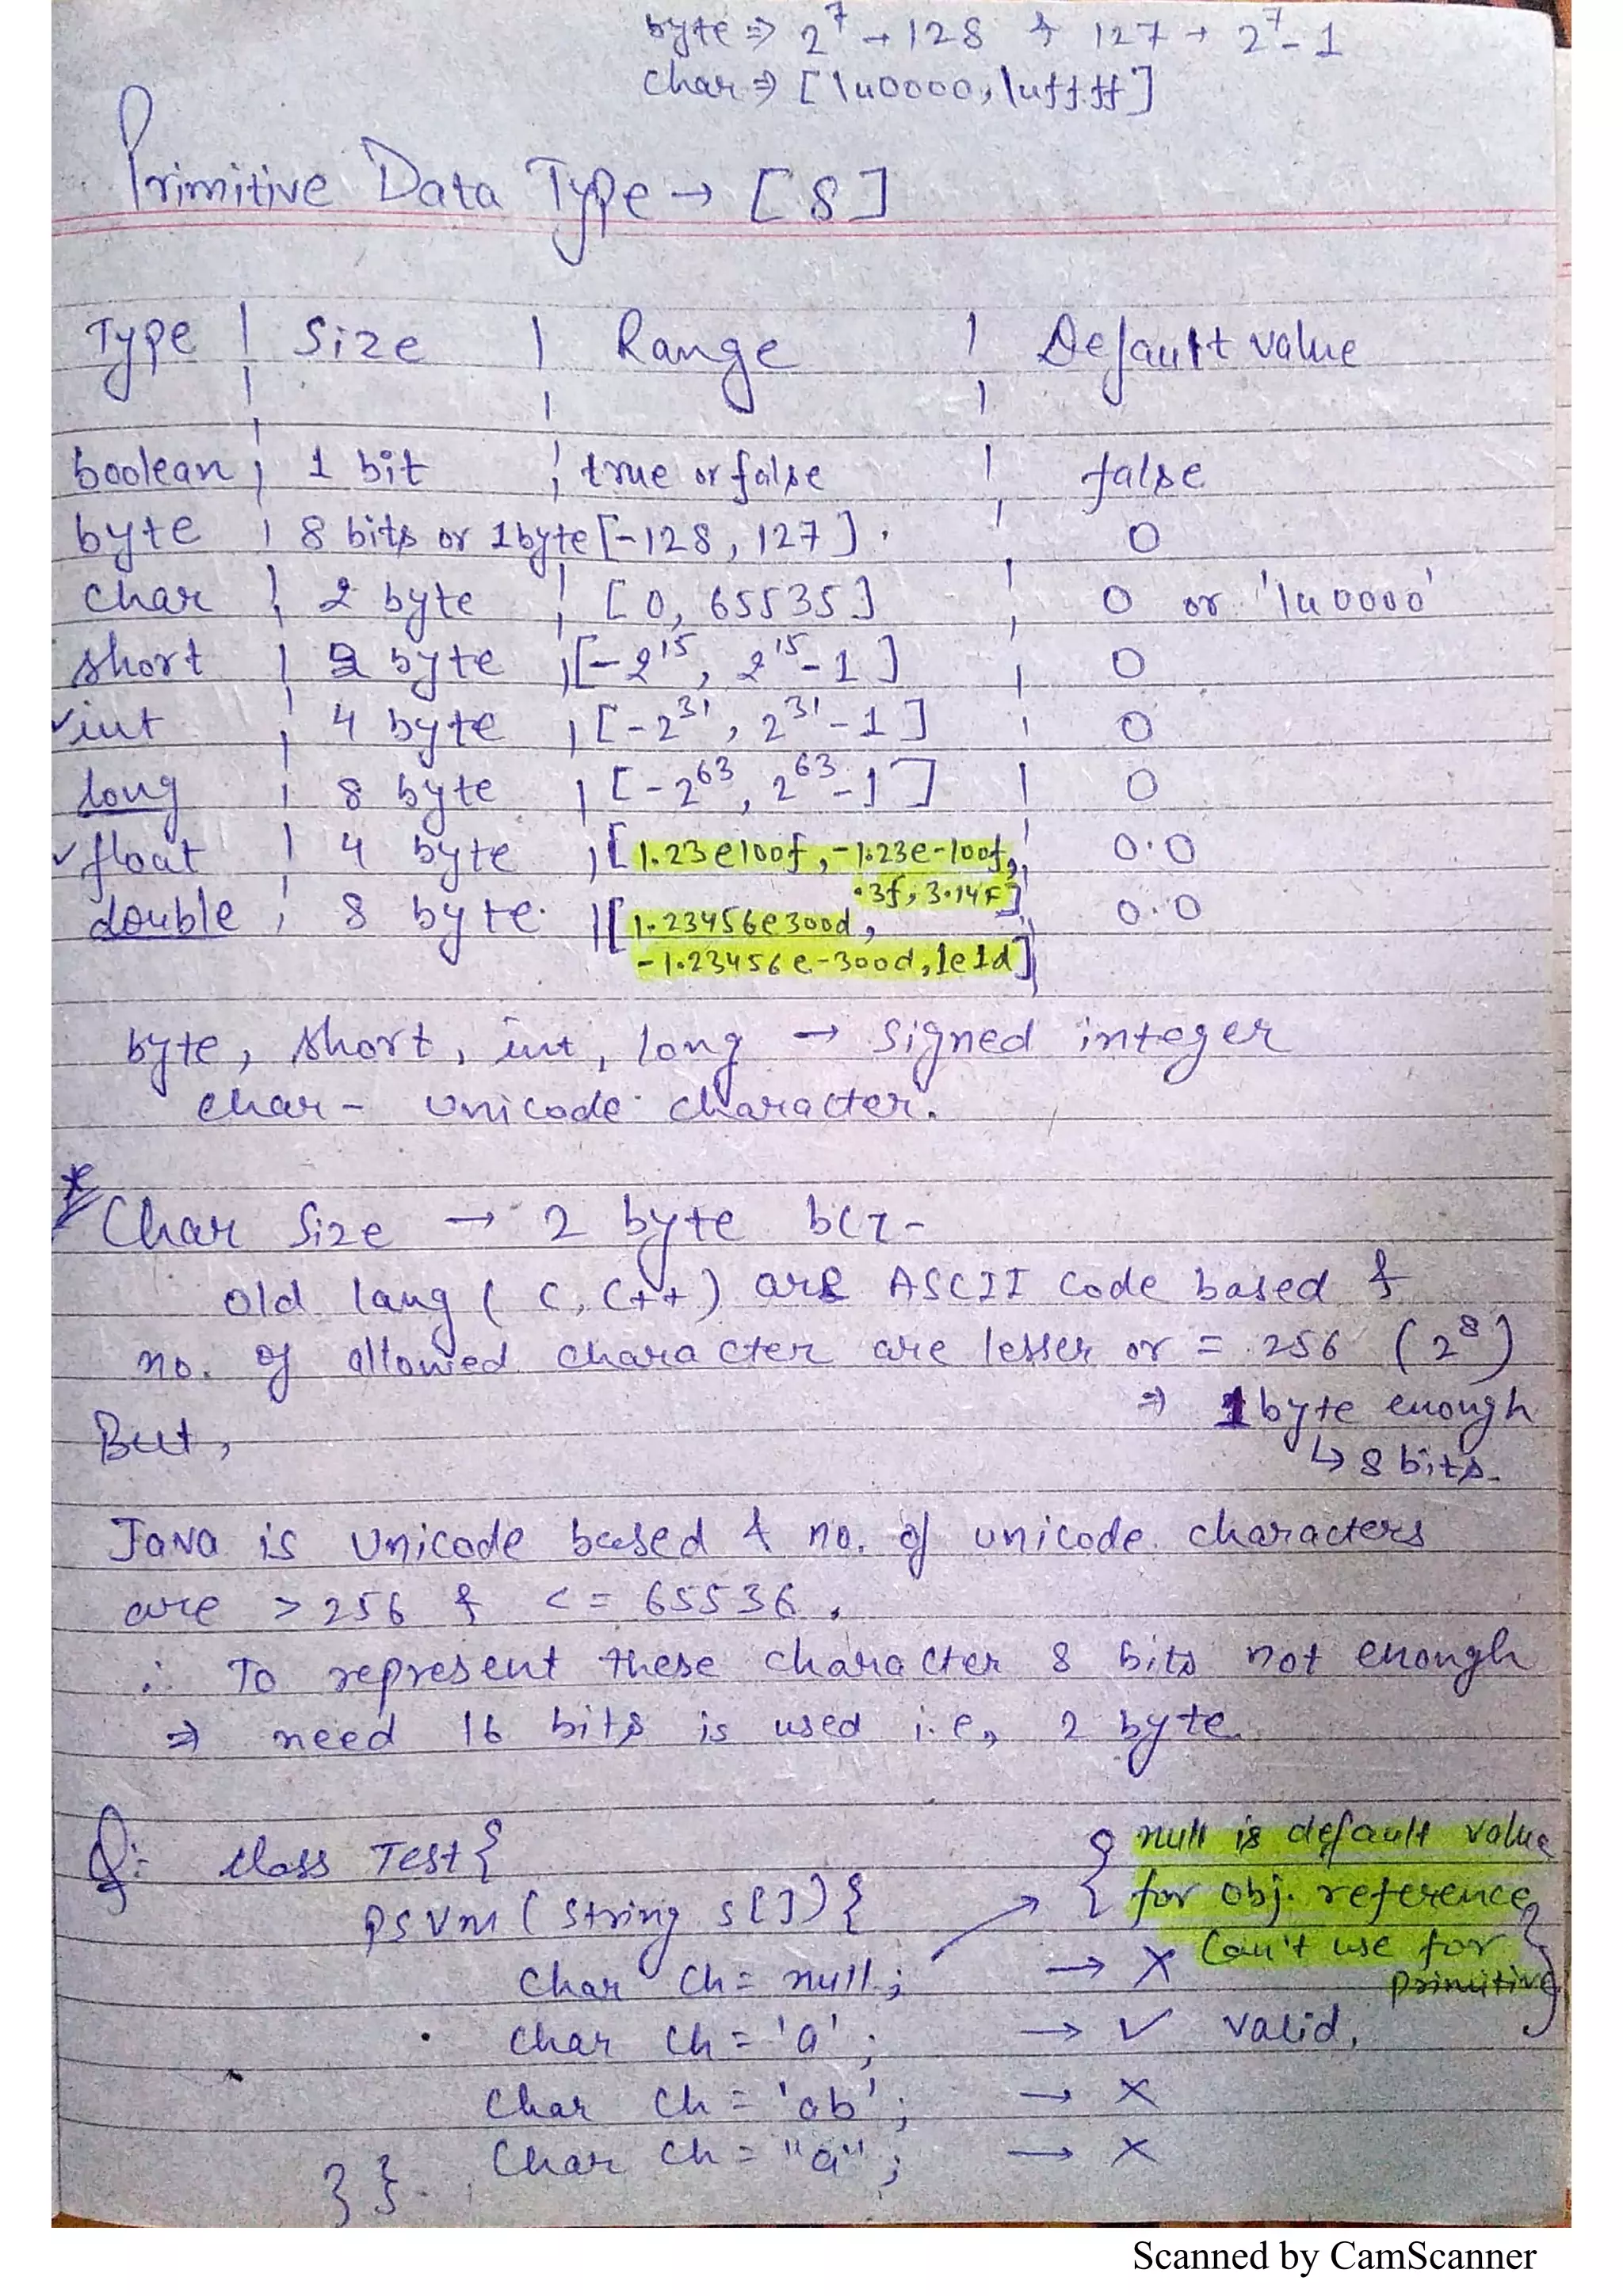 byte ⇒ 2^7 → 128 & 127 → 2^7 - 1
char ⇒ [\u0000, \uffff]
Primitive Data Type → [8]
Type | Size | Range | Default value
boolean | 1 bit | true or false | false
byte | 8 bits or 1byte [-128, 127] | 0
char | 2 byte | [0, 65535] | 0 or '\u0000'
short | 2 byte | [-2^15, 2^15-1] | 0
✓int | 4 byte | [-2^31, 2^31-1] | 0
long | 8 byte | [-2^63, 2^63-1] | 0
✓float | 4 byte | [1.23e100f, -1.23e-100f, | 0.0
.3f, 3.14F]
double | 8 byte. | [1.23456e300d, | 0.0
-1.23456e-300d, 1e1d]
byte, short, int, long → signed integer
char - unicode character.
* Char Size → 2 byte bcz -
old lang ( C, C++) are ASCII code based &
no. of allowed character are lesser or = 256 (2^8)
⇒ 1byte enough
But,
↳ 8 bits.
JaVa is Unicode based & no. of unicode characters
are > 256 & <= 65536.
∴ To represent these character 8 bits not enough
⇒ need 16 bits is used i.e, 2 byte
Q: class Test{
{ null is default value
for obj. reference
psvm ( String s[]){
Can't use for
primitive}
char ch = null; → ✗
char ch = 'a'; → ✓ valid.
char ch = 'ab'; → ✗
Char ch = "a"; → ✗
}}.
Scanned by CamScanner